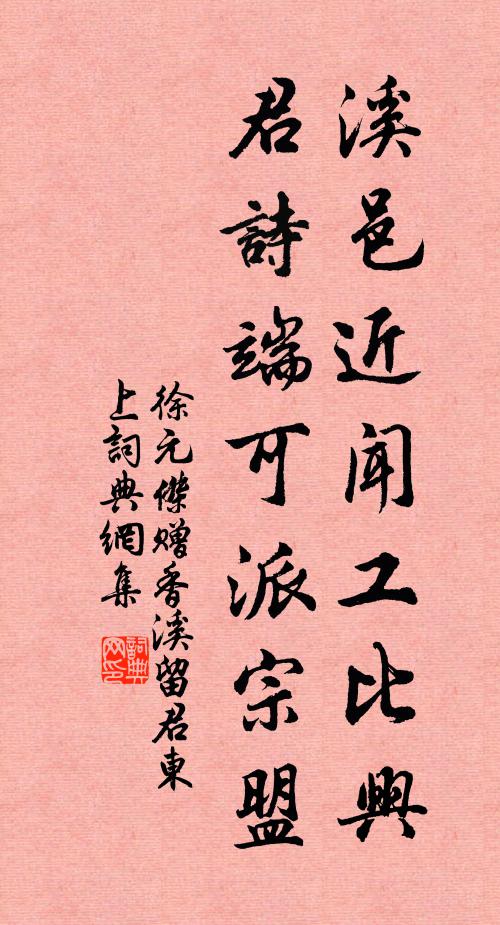 溪邑近闻工比興
君詩端可派宗盟
徐元傑赠香溪留君東
上詞典網集
詞典网印